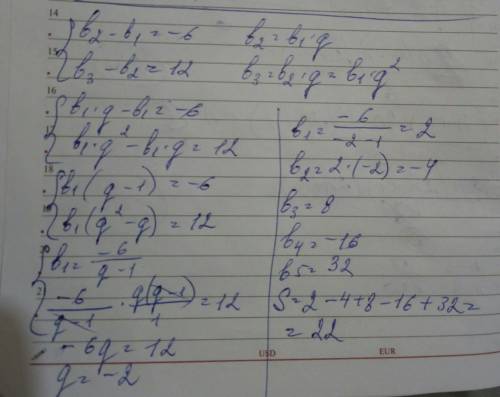 14
b₂ - b₁ = -6 b₂ = b₁·q
15
b₃ - b₂ = 12 b₃ = b₂·q = b₁·q²
16
b₁·q - b₁ = -6
b₁·q² - b₁·q = 12
18
b₁(q - 1) = -6
b₁(q² - q) = 12
b₁ = -6/(q - 1)
-6/(q - 1) · q(q - 1)/1 = 12
-6q = 12
q = -2
b₁ = -6/(-2 - 1) = 2
b₂ = 2·(-2) = -4
b₃ = 8
b₄ = -16
b5 = 32
S = 2 - 4 + 8 - 16 + 32 =
= 22
USD EUR